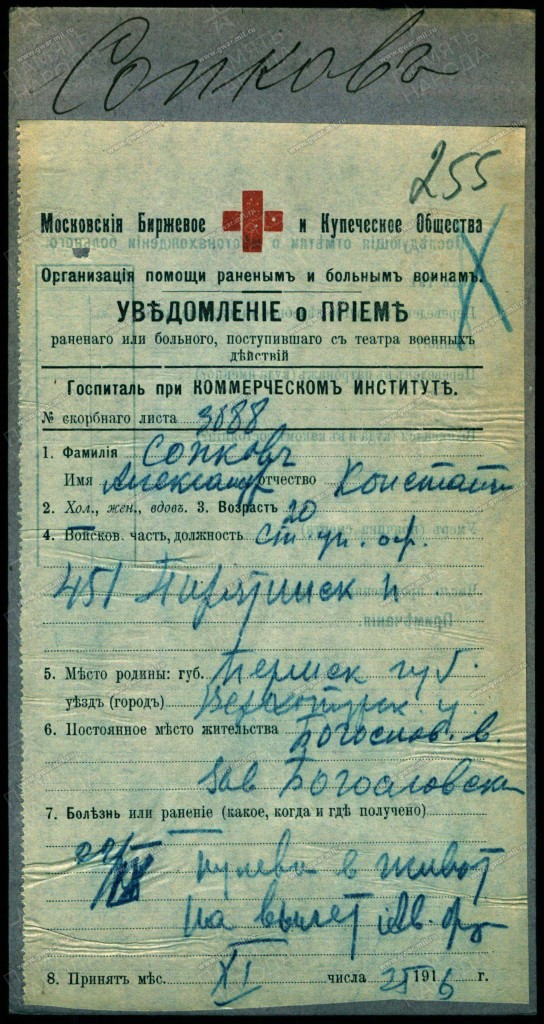 Сопковъ
255
Московскія Биржевое и Купеческое Общества
Организація помощи раненымъ и больнымъ воинамъ.
УВѢДОМЛЕНІЕ о ПРІЕМѢ
раненаго или больного, поступившаго съ театра военныхъ
дѣйствій
Госпиталь при КОММЕРЧЕСКОМЪ ИНСТИТУТѢ.
№ скорбнаго листа 3088
1. Фамилія Сопковъ
Имя Александр отчество Констант
2. Хол., жен., вдовъ. 3. Возрастъ 20
4. Войсков. часть, должность ст. ун. оф.
451 Пирятинск п.
5. Мѣсто родины: губ. Пермск губ.
уѣздъ (городъ) Верхотурск. у.
6. Постоянное мѣсто жительства Богослов. в.
зав Богословск
7. Болѣзнь или раненіе (какое, когда и гдѣ получено)
пулевая в живот
на вылет
8. Принятъ мѣс. XI числа 25 1916 г.